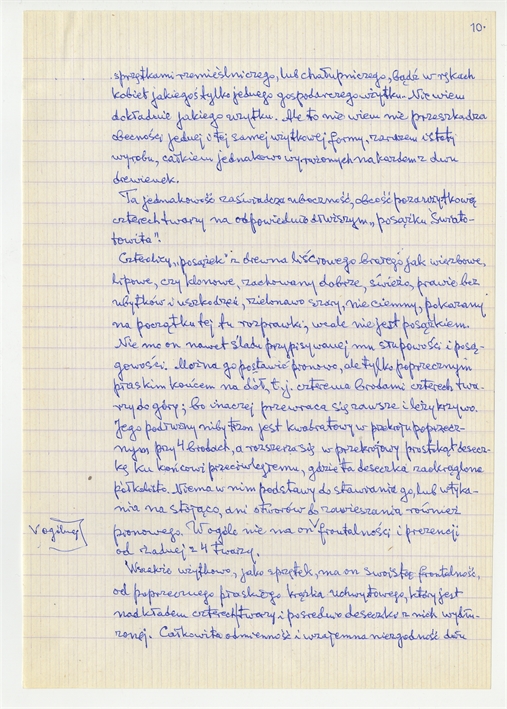 10.
sprzętkami rzemieślniczego, lub chałupniczego, bądź w rękach
kobiet jakiegoś tylko jednego gospodarczego użytku. Nie wiem
dokładnie jakiego użytku. Ale to nie wiem nie przeszkadza
obecności jednej i tej samej użytkowej formy, zarazem istoty
wyrobu, całkiem jednakowo wyrażonych na każdem z dwu
drewienek.
Ta jednakowość zaświadcza uboczność, obcość pozaużytkową
czterech twarzy na odpowiednio dłuższym „posążku Świato-
towita".
Czteolicy „posążek" z drewna liściowego białego jak wierzbowe,
lipowe, czy klonowe, zachowany dobrze, świeżo, prawie bez
ubytków i uszkodzeń, zielonawo szary, nie ciemny, pokazany
na początku tej tu rozprawki, wcale nie jest posążkiem.
Nie ma on nawet śladu przypisywanej mu słupowości i posą-
gowości. Można go postawić pionowo, ale tylko poprzecznym
płaskim końcem na dół, t.j. czterema brodami czterech twa-
rzy do góry; bo inaczej przewraca się zawsze i leży krzywo.
Jego podłużny niby trzon jest kwadratowy w przekroju poprzecz-
nym przy 4 brodach, a rozszerza się w przekrojowy prostokąt deszcz-
kę ku końcowi przeciwległemu, gdzie ta deseczka zaokrąglona
półkolisto. Niema w nim podstawy do stawiania go, lub wtyka-
nia na stojąco, ani otworów do zawieszania również
pionowego. W ogóle nie ma on V frontalności i prezencji
V ogólnej
od żadnej z 4 twarzy.
Wszakże użytkowo, jako sprzętek, ma on swoistą frontalność,
od poprzecznego płaskiego krążka uchwytowego, który jest
nadkładem czterech twarzy i pośrednio deseczki z nich wydłu-
żonej. Całkowita odmienność i wzajemna niezgodność dwu